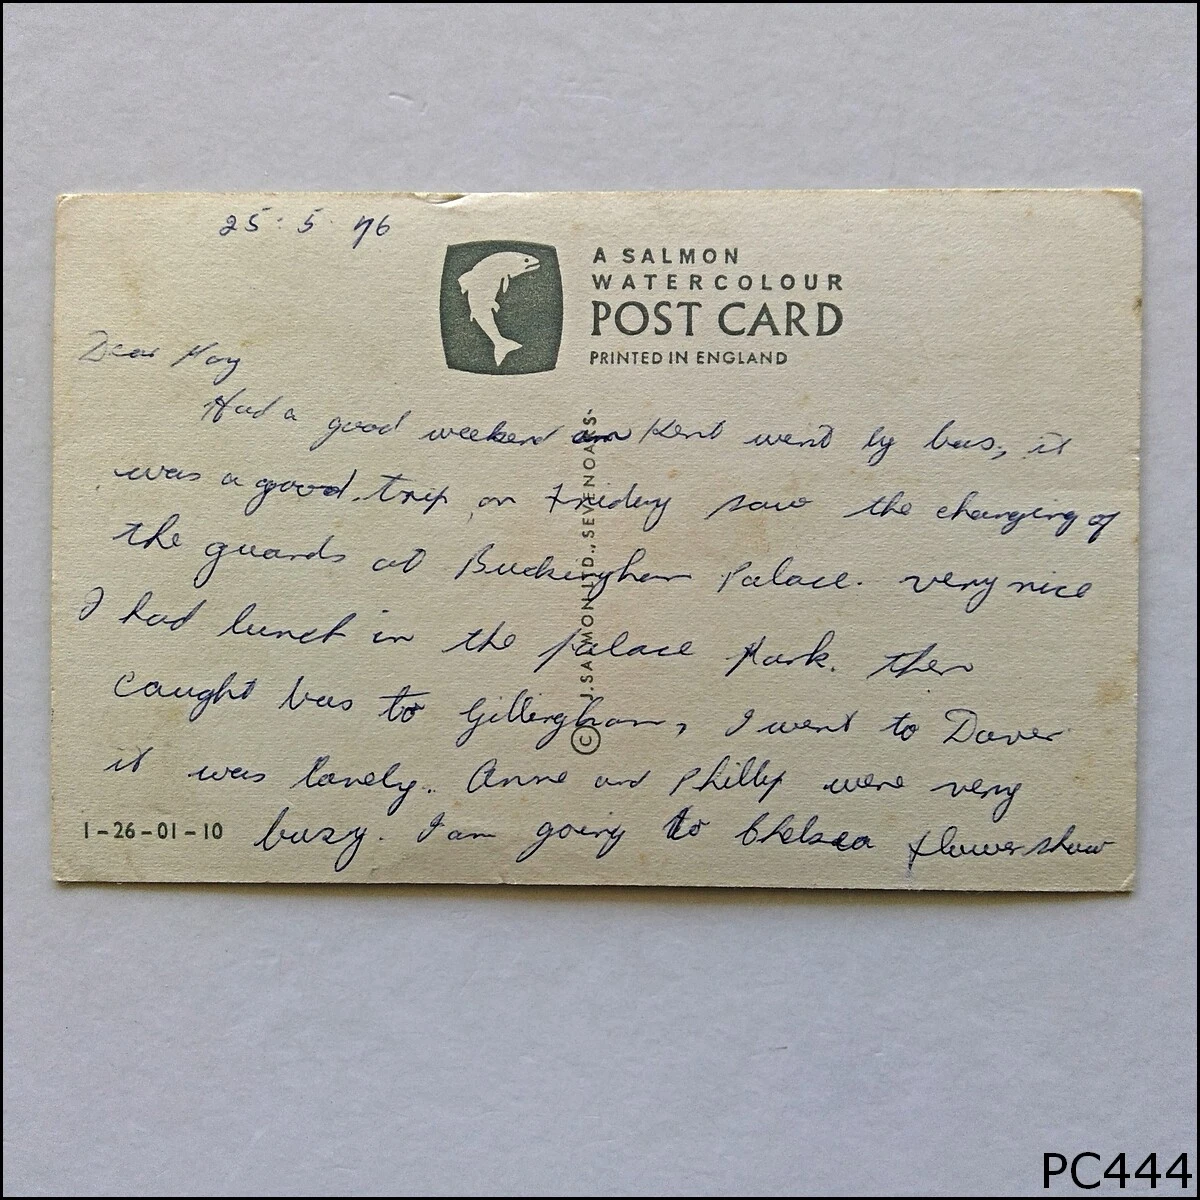 25·5·76
A SALMON
WATERCOLOUR
POST CARD
PRINTED IN ENGLAND
Dear May
Had a good weekend in Kent went by bus, it
was a good trip, on Friday saw the changing of
the guards at Buckingham Palace. very nice
I had lunch in the palace Park. then
caught bus to Gillingham, I went to Dover
it was lovely. Anne and Phillip were very
busy. I am going to Chelsea flower show
© J. SALMON LTD., SEVENOAKS·
1-26-01-10
PC444